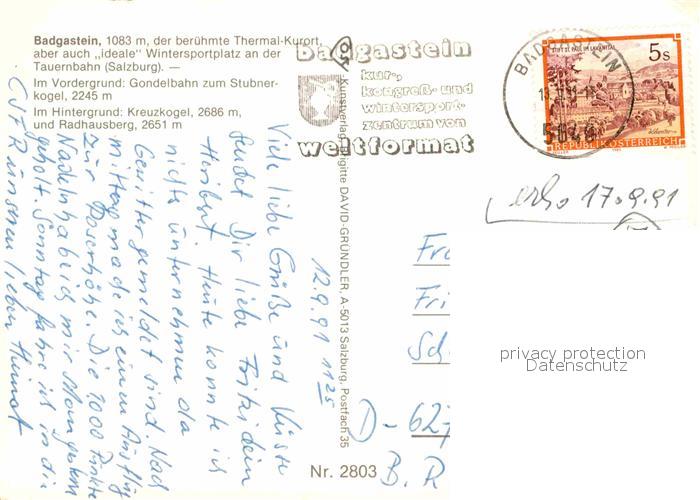 Badgastein, 1083 m, der berühmte Thermal-Kurort,
aber auch „ideale" Wintersportplatz an der
Tauernbahn (Salzburg). —
Im Vordergrund: Gondelbahn zum Stubner-
kogel, 2245 m
Im Hintergrund: Kreuzkogel, 2686 m,
und Radhausberg, 2651 m
badgastein
kur-,
kongreß- und
wintersport-
zentrum von
weltformat
BADGASTEIN
STIFT ST. PAUL IM LAVANTTAL
5 S
REPUBLIK ÖSTERREICH
17.9.91
12.9.91 1125
Viele liebe Grüße und Küsse
sendet Dir liebe Fritzi dein
Heribert. Heute konnte ich
nichts unternehmen da
Gewitter gemeldet sind. Nach
mittag made ich einen Ausflug
zur Poserhöhe. Die 7000 Punkte
Nadeln hab ich mir Morgen
geholt. Sonntag fahre ich in die
unseren lieben Heimat
Kunstverlag Brigitte DAVID-GRÜNDLER, A-5013 Salzburg, Postfach 35
Fr
Fri
Sch
D - 62
B. R
Nr. 2803
privacy protection
Datenschutz